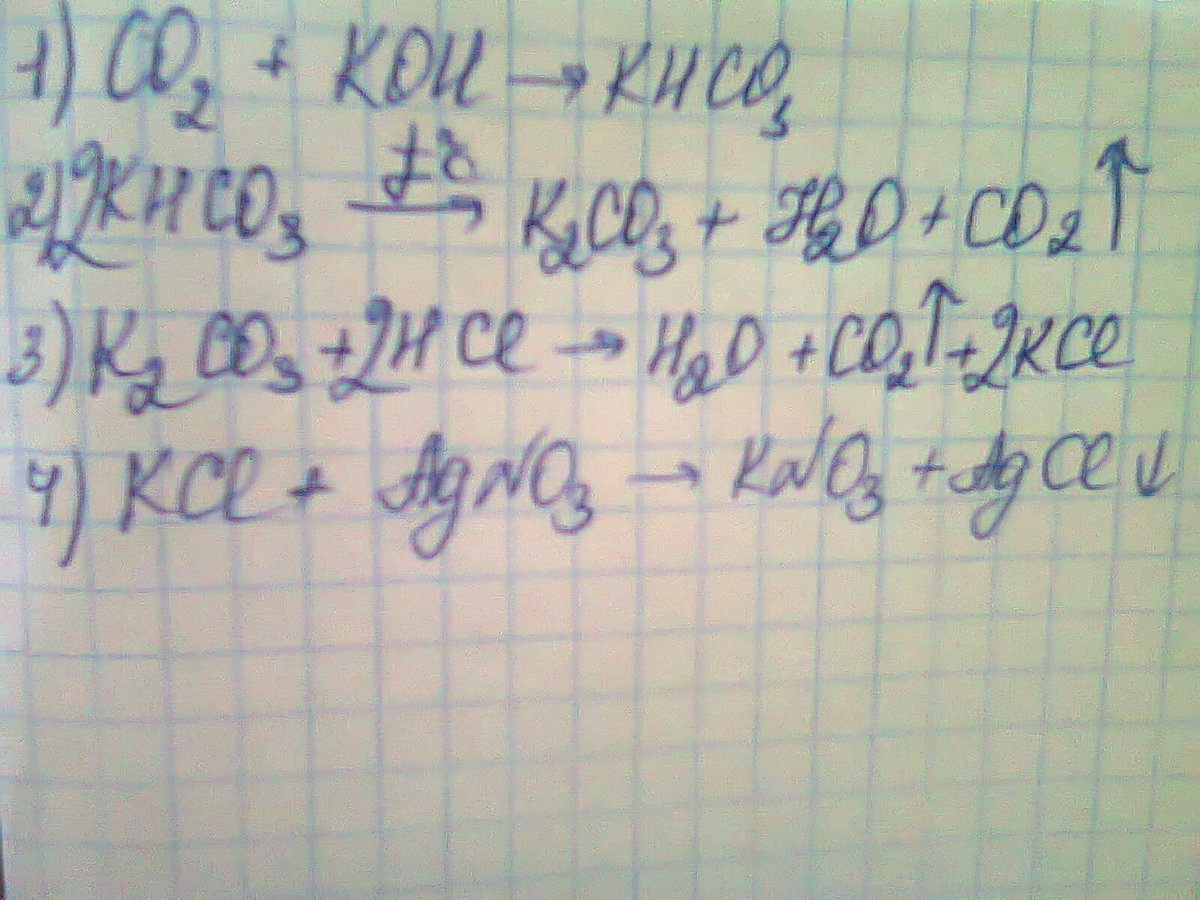 1) CO₂ + KOH → KHCO₃
2) 2KHCO₃ t°→ K₂CO₃ + H₂O + CO₂↑
3) K₂CO₃ + 2HCl → H₂O + CO₂↑ + 2KCl
4) KCl + AgNO₃ → KNO₃ + AgCl↓